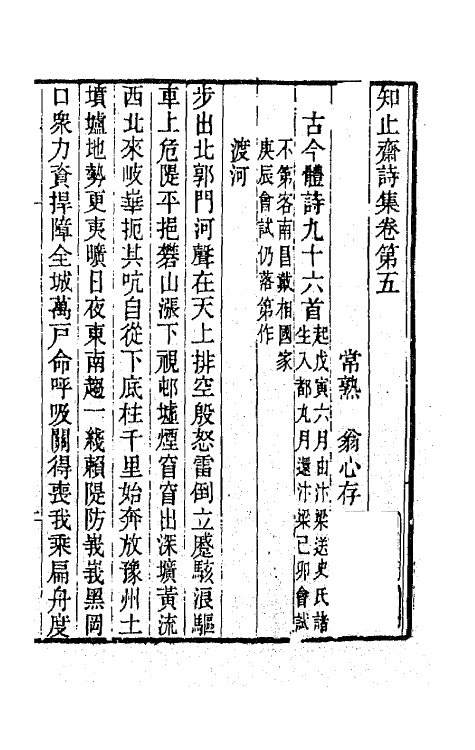 知止齋詩集卷第五
常熟 翁心存
古今體詩九十六首起戊寅六月由汴梁送史氏諸
生入都九月還汴梁己卯會試
不第客南昌戴相國家
庚辰會試仍落第作
渡河
步出北郭門河聲在天上排空殷怒雷倒立蹙駭浪驅
車上危隄平挹礬山漲下視邨墟煙窅窅出深壙黃流
西北來岐崋扼其吭自從下底柱千里始奔放豫州土
墳壚地勢更夷曠日夜東南趨一綫賴隄防峩峩黑岡
口衆力資捍障全城萬戸命呼吸關得喪我乘扁舟度